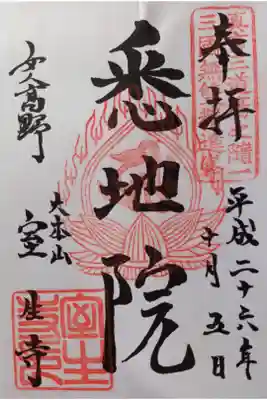 奉拝
平成二十六年
十月五日
悉地院
女人高野
大本山
室生寺